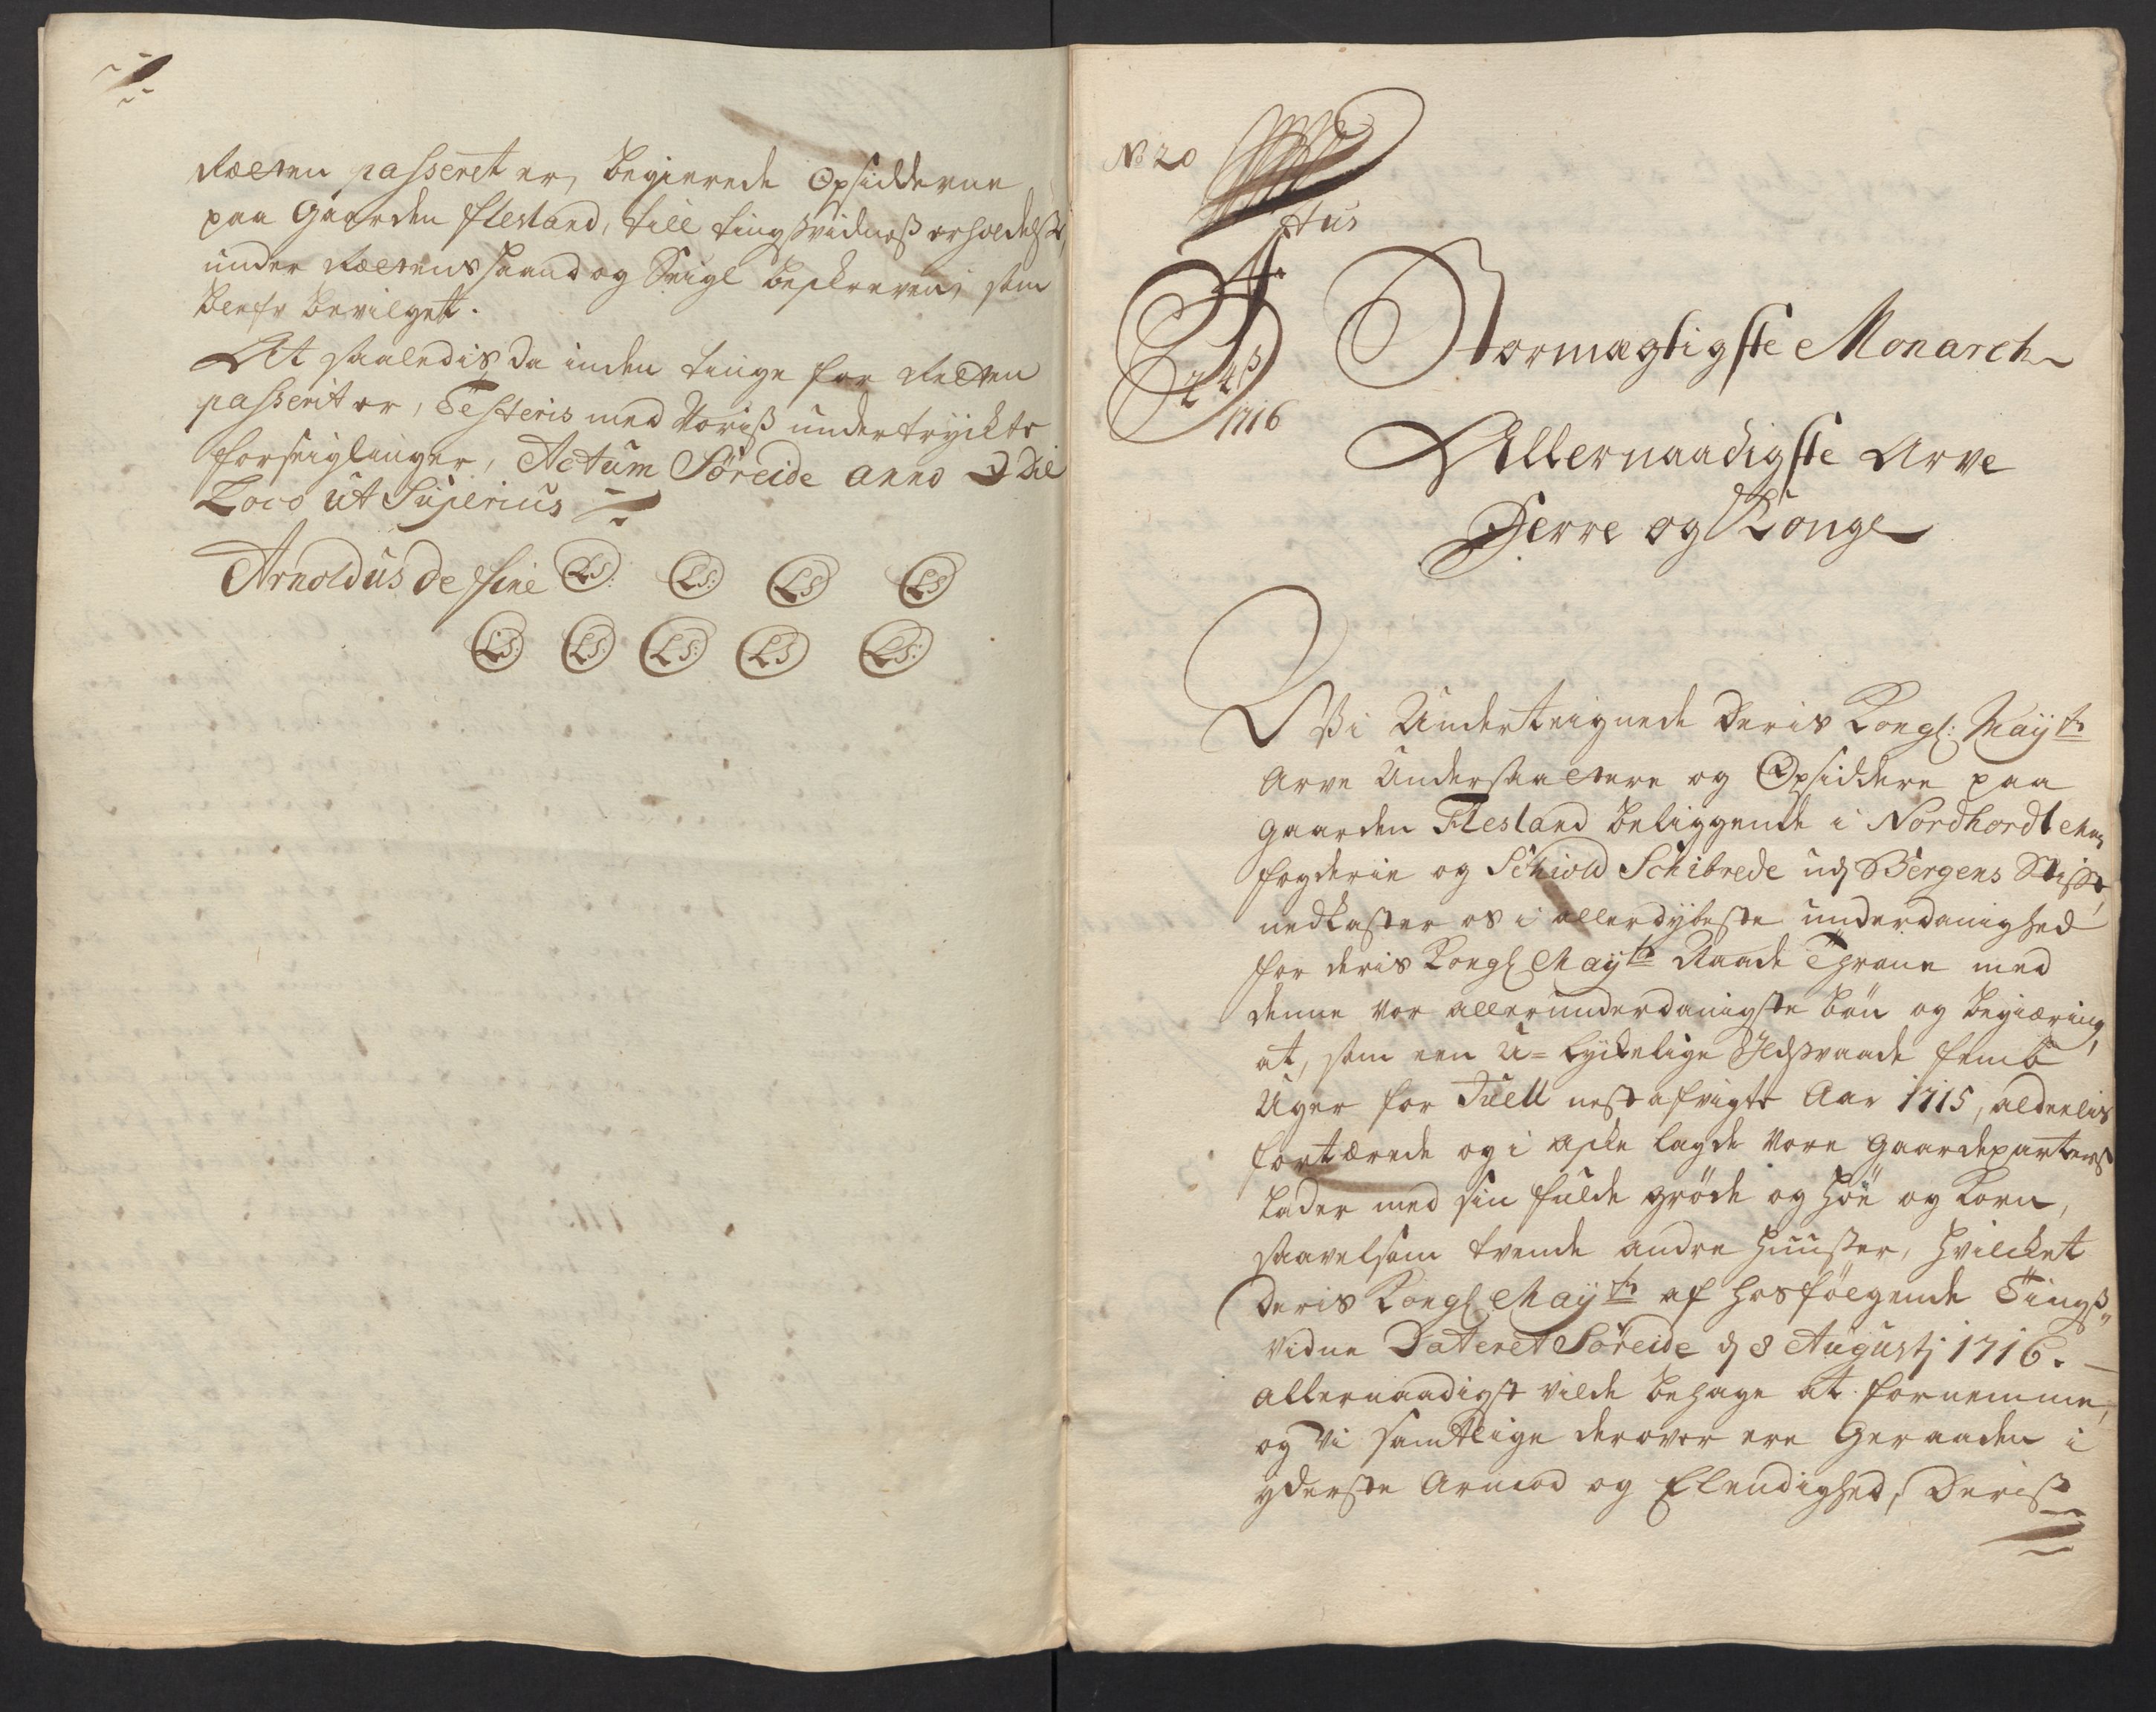 Rætten passeret er, begierede Opsidderne
paa Gaarden Flesland, till tingsvidneß erholdelse,
under Rættens Haand og Seigl beskreven, som
blefv bevilget.
At saaledis da inden tinge for Retten
passerit er, Testeris med Voris undertrÿckte
forseiglinger, Actum Söreide anno Die
Loco ut Superius
Arnoldus de fine LS: LS: LS LS
LS: LS: LS: LS LS:
No 20
1716
Stormægtigste Monarch
Allernaadigste Arve
Herre og Konge
Vi Underteignede Deris Kongl: Maÿts
Arve Undersaattere og Opsiddere paa
gaarden Flesland beliggende i Nordhordlehns
fogderie og Schiold Schibrede udj Bergens Stift,
nedkaster os i allerdÿbeste underdanighed
for deris Kongl Maÿts Naade Throne med
denne vor allerunderdanigste bön og begiæring,
at, som een U-lÿkelige Ildsvaade femb
Uger for Juell nestafvigte Aar 1715, alderlis
fortærede og i aske lagde vore gaardeparters
Lader med sin fulde gröde og Höe og Korn,
saavelsom trende andre Huusser, hvilcket
Deris Kongl Maÿts af hosfölgende Tings-
vidne Dateret Söreide dj 8 Augustj 1716.
allernaadigst vilde behage at fornemme,
og Vi samtlige derover ere Geraaden i
ÿderste Armod og Elendighed, Deriß